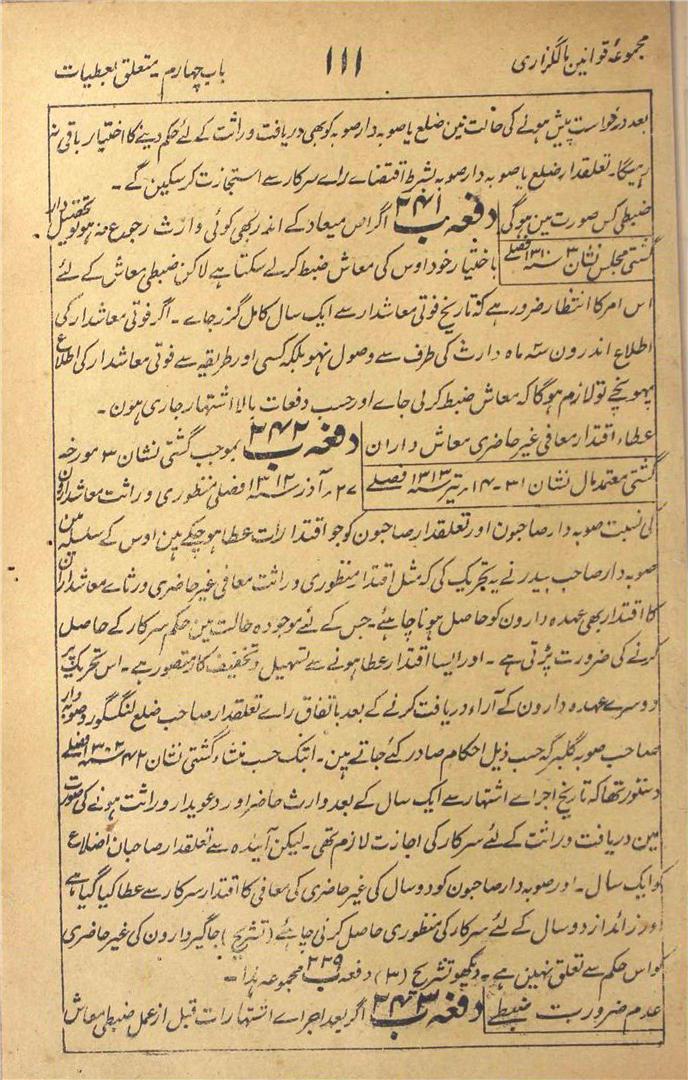 مجموعۂ قوانین مالگزاری
۱۱۱
باب چہارم۔ متعلق بعطیات
بعد درخواست پیش ہونے کی حالت مین ضلع یا صوبہ دار صوبہ کو بھی دریافت وراثت کے لئے حکم دینے کا اختیار باقی نہ
رہیگا۔ تعلقدار ضلع یا صوبہ دار صوبہ بشرط اقتضاے راے سرکار سے استجازت کر سکین گے۔
ضبطی کس صورت مین ہوگی
دفعہ ۲۴۱ ب اگر اس میعاد کے اندر بھی کوئی وارث رجوع نہ ہو تو تحصیلدار
گشتی مجلس نشان ۳ سنہ ۱۳۱۰ فصلی
با ختیار خود اوس کی معاش ضبط کر لے سکتا ہے لاکن ضبطی معاش کے لئے
اس امر کا انتظار ضرور ہے کہ تاریخ فوتی معاشدار سے ایک سال کامل گزر جاے۔ اگر فوتی معاشدار کی
اطلاع اندرون سہ ماہ وارث کی طرف سے وصول نہو بلکہ کسی اور طریقہ سے فوتی معاشدار کی اطلاع
پہونچے تو لازم ہوگا کہ معاش ضبط کر لی جاے اور حسب دفعات بالا اشتہار جاری ہون۔
عطاء اقتدار معافی غیر حاضری معاش داران
دفعہ ۲۴۲ ب بموجب گشتی نشان ۳ مورخہ
گشتی معتمد مال نشان ۳۱-۱۴ تیر سنہ ۱۳۱۳ فصلی
۲۷۔ آذر سنہ ۱۳۱۲ فصلی منظوری وراثت معاشداران
کی نسبت صوبہ دار صاحبون اور تعلقدار صاحبون کو جو اقتدارات عطا ہو چکے ہین اوس کے سلسلہ مین
صوبہ دار صاحب بیدر نے یہ تحریک کی کہ مثل اقتدار منظوری وراثت معافی غیر حاضری ورثاے معاشداران
کا اقتدار بھی عہدہ دارون کو حاصل ہونا چاہئے۔ جس کے لئے موجودہ حالت مین حکم سرکار کے حاصل
کرنے کی ضرورت پڑتی ہے۔ اور ایسا اقتدار عطا ہونے سے تسہیل و تخفیف کار متصور ہے۔ اس تحریک پر
دوسرے عہدہ دارون کے آراء دریافت کرنے کے بعد باتفاق راے تعلقدار صاحب ضلع لنگسگور و صوبہ دار
صاحب صوبہ گلبرگہ حسب ذیل احکام صادر کئے جاتے ہین۔ ابتک حسب منشاء گشتی نشان ۴۲ سنہ ۱۳۰۲ فصلی
دستور تھا کہ تاریخ اجراے اشتہار سے ایک سال کے بعد وارث حاضر اور دعویدار وراثت ہونے کی صورت
مین دریافت وراثت کے لئے سرکار کی اجازت لازم تھی۔ لیکن آیندہ سے تعلقدار صاحبان اضلاع
کو ایک سال۔ اور صوبہ دار صاحبون کو دو سال کی غیر حاضری کی معافی کا اقتدار سرکار سے عطا کیا گیا ہے
اور زائد از دو سال کے لئے سرکار کی منظوری حاصل کرنی چاہئے (تشریح) جاگیردارون کی غیر حاضری
کو اس حکم سے تعلق نہین ہے۔ دیکھو تشریح (۳) دفعہ ۲۳۹ ب مجموعہ ہذا۔
عدم ضرورت ضبطی
دفعہ ۲۴۳ ب اگر بعد اجراے اشتہارات قبل از عمل ضبطی معاش